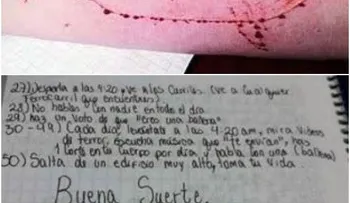 27) Despierta a las 4:20, ve a las Carrilas. (ve a Cualquier
ferrocarril que encuentres)
28) No hables con nadie en todo el dia
29) haz un voto de que "eres una ballena"
30-49) Cada dia, levantate a las 4:20 am, mira videos
de terror, escucha musica que "te envian", haz
1 corte en tu cuerpo por dia y habla con una (ballena)
50) Salta de un edificio muy alto, toma tu vida.
Buena Suerte.